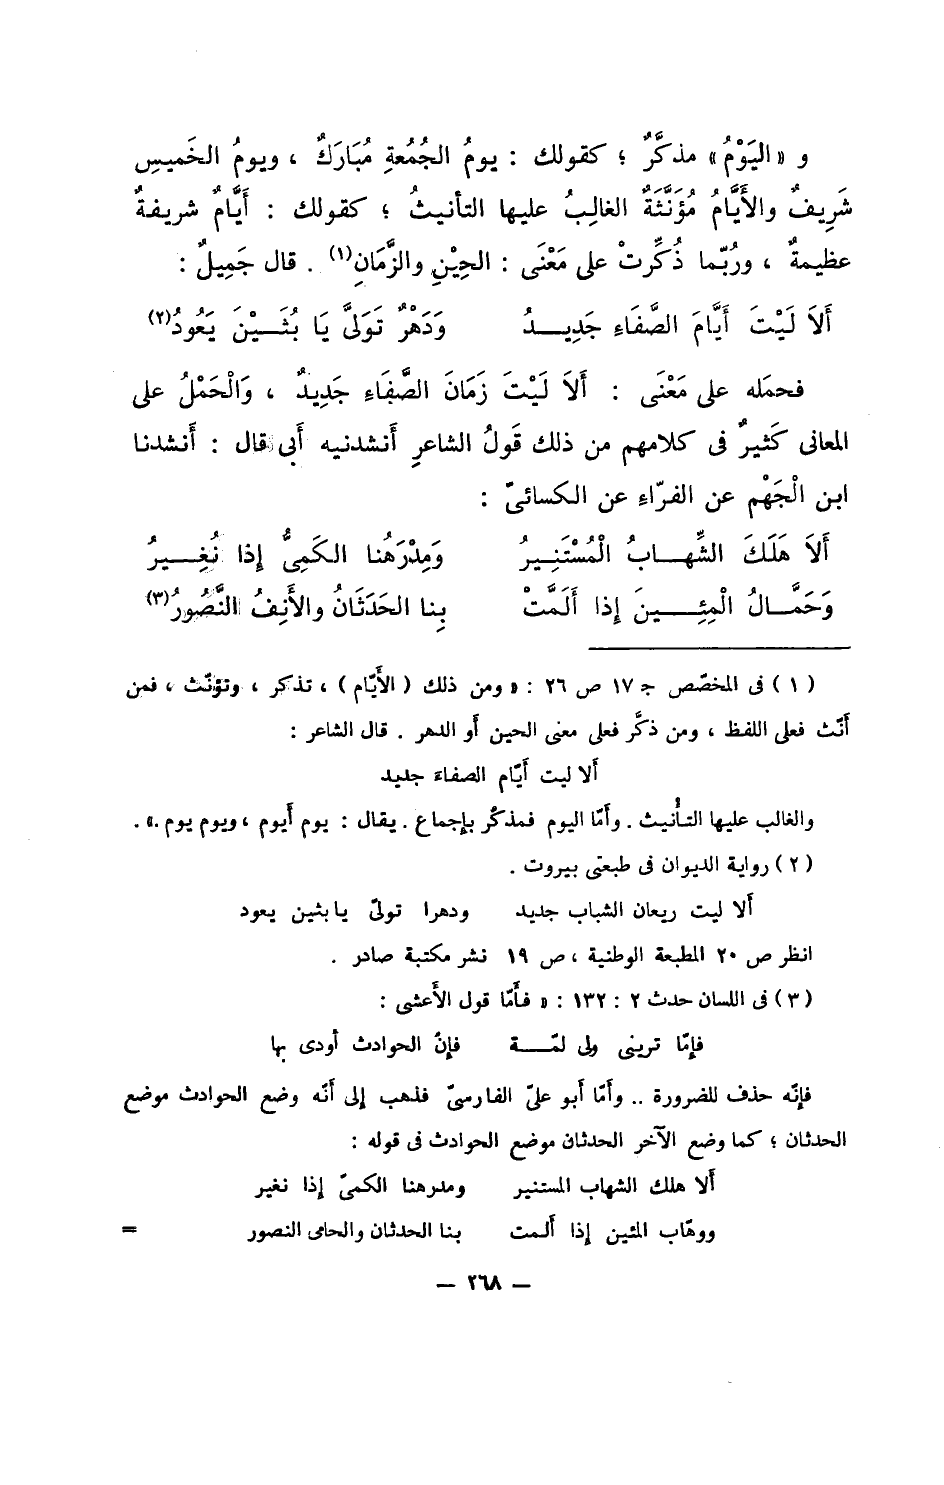 و « اليَوْمُ » مذكَّرٌ ؛ كقولك : يومُ الجُمُعةِ مُبَارَكٌ ، ويومُ الخَميسِ
شَرِيفٌ والأَيَّامُ مُؤَنَّثَةٌ الغالِبُ عليها التأنيثُ ؛ كقولك : أَيَّامٌ شريفةٌ
عظيمةٌ ، ورُبّما ذُكِّرتْ على مَعْنَى : الحِيْنِ والزَّمَانِ(١) . قال جَمِيلٌ :
أَلاَ لَيْتَ أَيَّامَ الصَّفَاءِ جَدِيـــدُ وَدَهْرٌ تَوَلىَّ يَا بُثَــيْنَ يَعُودُ(٢)
فحمَله على مَعْنَى : أَلاَ لَيْتَ زَمَانَ الصَّفَاءِ جَدِيدٌ ، وَالْحَمْلُ على
المعانى كَثيرٌ فى كلامهم من ذلك قَولُ الشاعرِ أَنشدنيه أَبى قال : أَنشدنا
ابن الْجَهْم عن الفرّاء عن الكسائىّ :
أَلاَ هَلَكَ الشِّهـــابُ الْمُسْتَنِيرُ وَمِدْرَهُنا الكَمِىُّ إِذا نُغِـــيرُ
وَحَمَّـــالُ الْمِئِـــينَ إِذا أَلَمَّتْ بِنا الحَدَثَانُ والأَنِفُ النَّصُورُ(٣)
( ١ ) فى المخصّص ج ١٧ ص ٢٦ : « ومن ذلك ( الأَيّام ) ، تذكر ، وتؤنّث ، فمن
أَنّث فعلى اللفظ ، ومن ذكَّر فعلى معنى الحين أَو الدهر . قال الشاعر :
أَلا ليت أَيّام الصفاء جديد
والغالب عليها التأْنيث . وأَمّا اليوم فمذكر بإِجماع . يقال : يوم أَيوم ، ويوم يوم .» .
( ٢ ) رواية الديوان فى طبعتى بيروت .
أَلا ليت ريعان الشباب جديد ودهرا تولىّ يا بثين يعود
انظر ص ٢٠ المطبعة الوطنية ، ص ١٩ نشر مكتبة صادر .
( ٣ ) فى اللسان حدث ٢ : ١٣٢ : « فأَمّا قول الأَعشى :
فإِمّا ترينى ولى لمّـــة فإِنّ الحوادث أَودى بها
فإِنّه حذف للضرورة .. وأَمّا أَبو علىّ الفارسىّ فذهب إِلى أَنّه وضع الحوادث موضع
الحدثان ؛ كما وضع الآخر الحدثان موضع الحوادث فى قوله :
أَلا هلك الشهاب المستنير ومدرهنا الكمىّ إِذا نغير
ووهّاب المئين إِذا أَلمت بنا الحدثان والحامى النصور =
— ٢٦٨ —